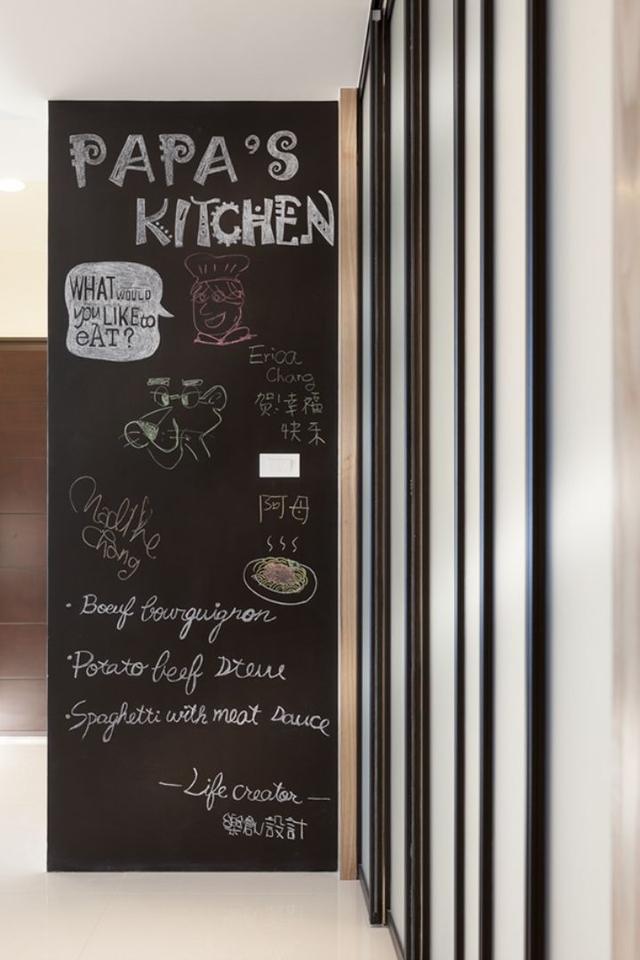 PAPA'S
KITCHEN
WHAT WOULD
you LIKE to
eAT?
Erica
Chang
賀!幸福
快禾
阿母
Chang
· Boeuf bourguignon
· Potato beef Stew
· Spaghetti with meat Sauce
— Life creator —
樂創設計